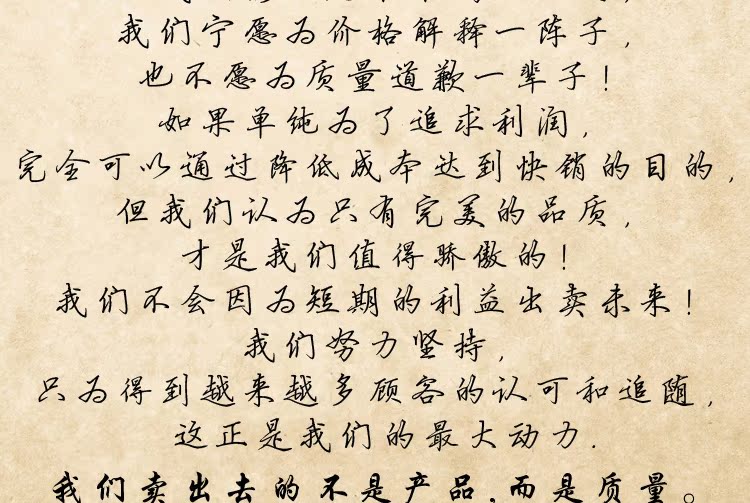 我们宁愿为价格解释一阵子，
也不愿为质量道歉一辈子！
如果单纯为了追求利润，
完全可以通过降低成本达到快销的目的，
但我们认为只有完美的品质，
才是我们值得骄傲的！
我们不会因为短期的利益出卖未来！
我们努力坚持，
只为得到越来越多顾客的认可和追随，
这正是我们的最大动力.
我们卖出去的不是产品，而是质量。